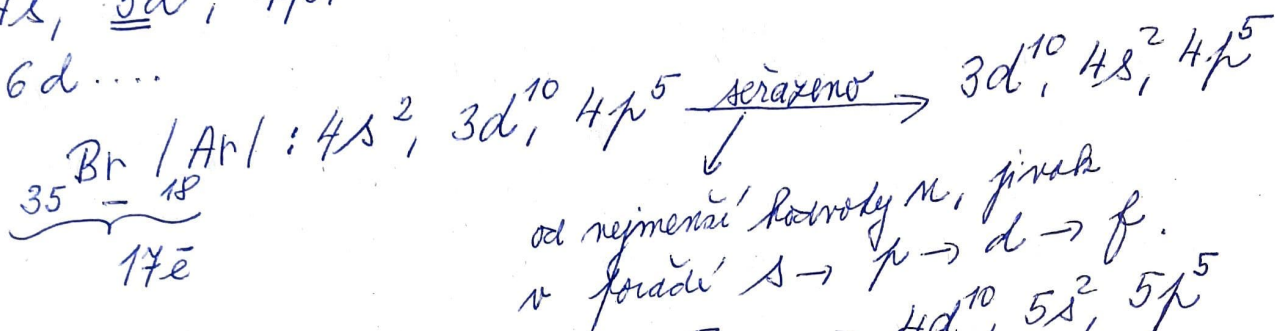 4s, 3d, 4p,
6d ....
₃₅Br /₁₈Ar/ : 4s², 3d¹⁰, 4p⁵ seřazeno → 3d¹⁰, 4s², 4p⁵
35 – 18
17ē
od nejmenší hodnoty n, jinak
v pořadí s → p → d → f.
4d¹⁰, 5s², 5p⁵